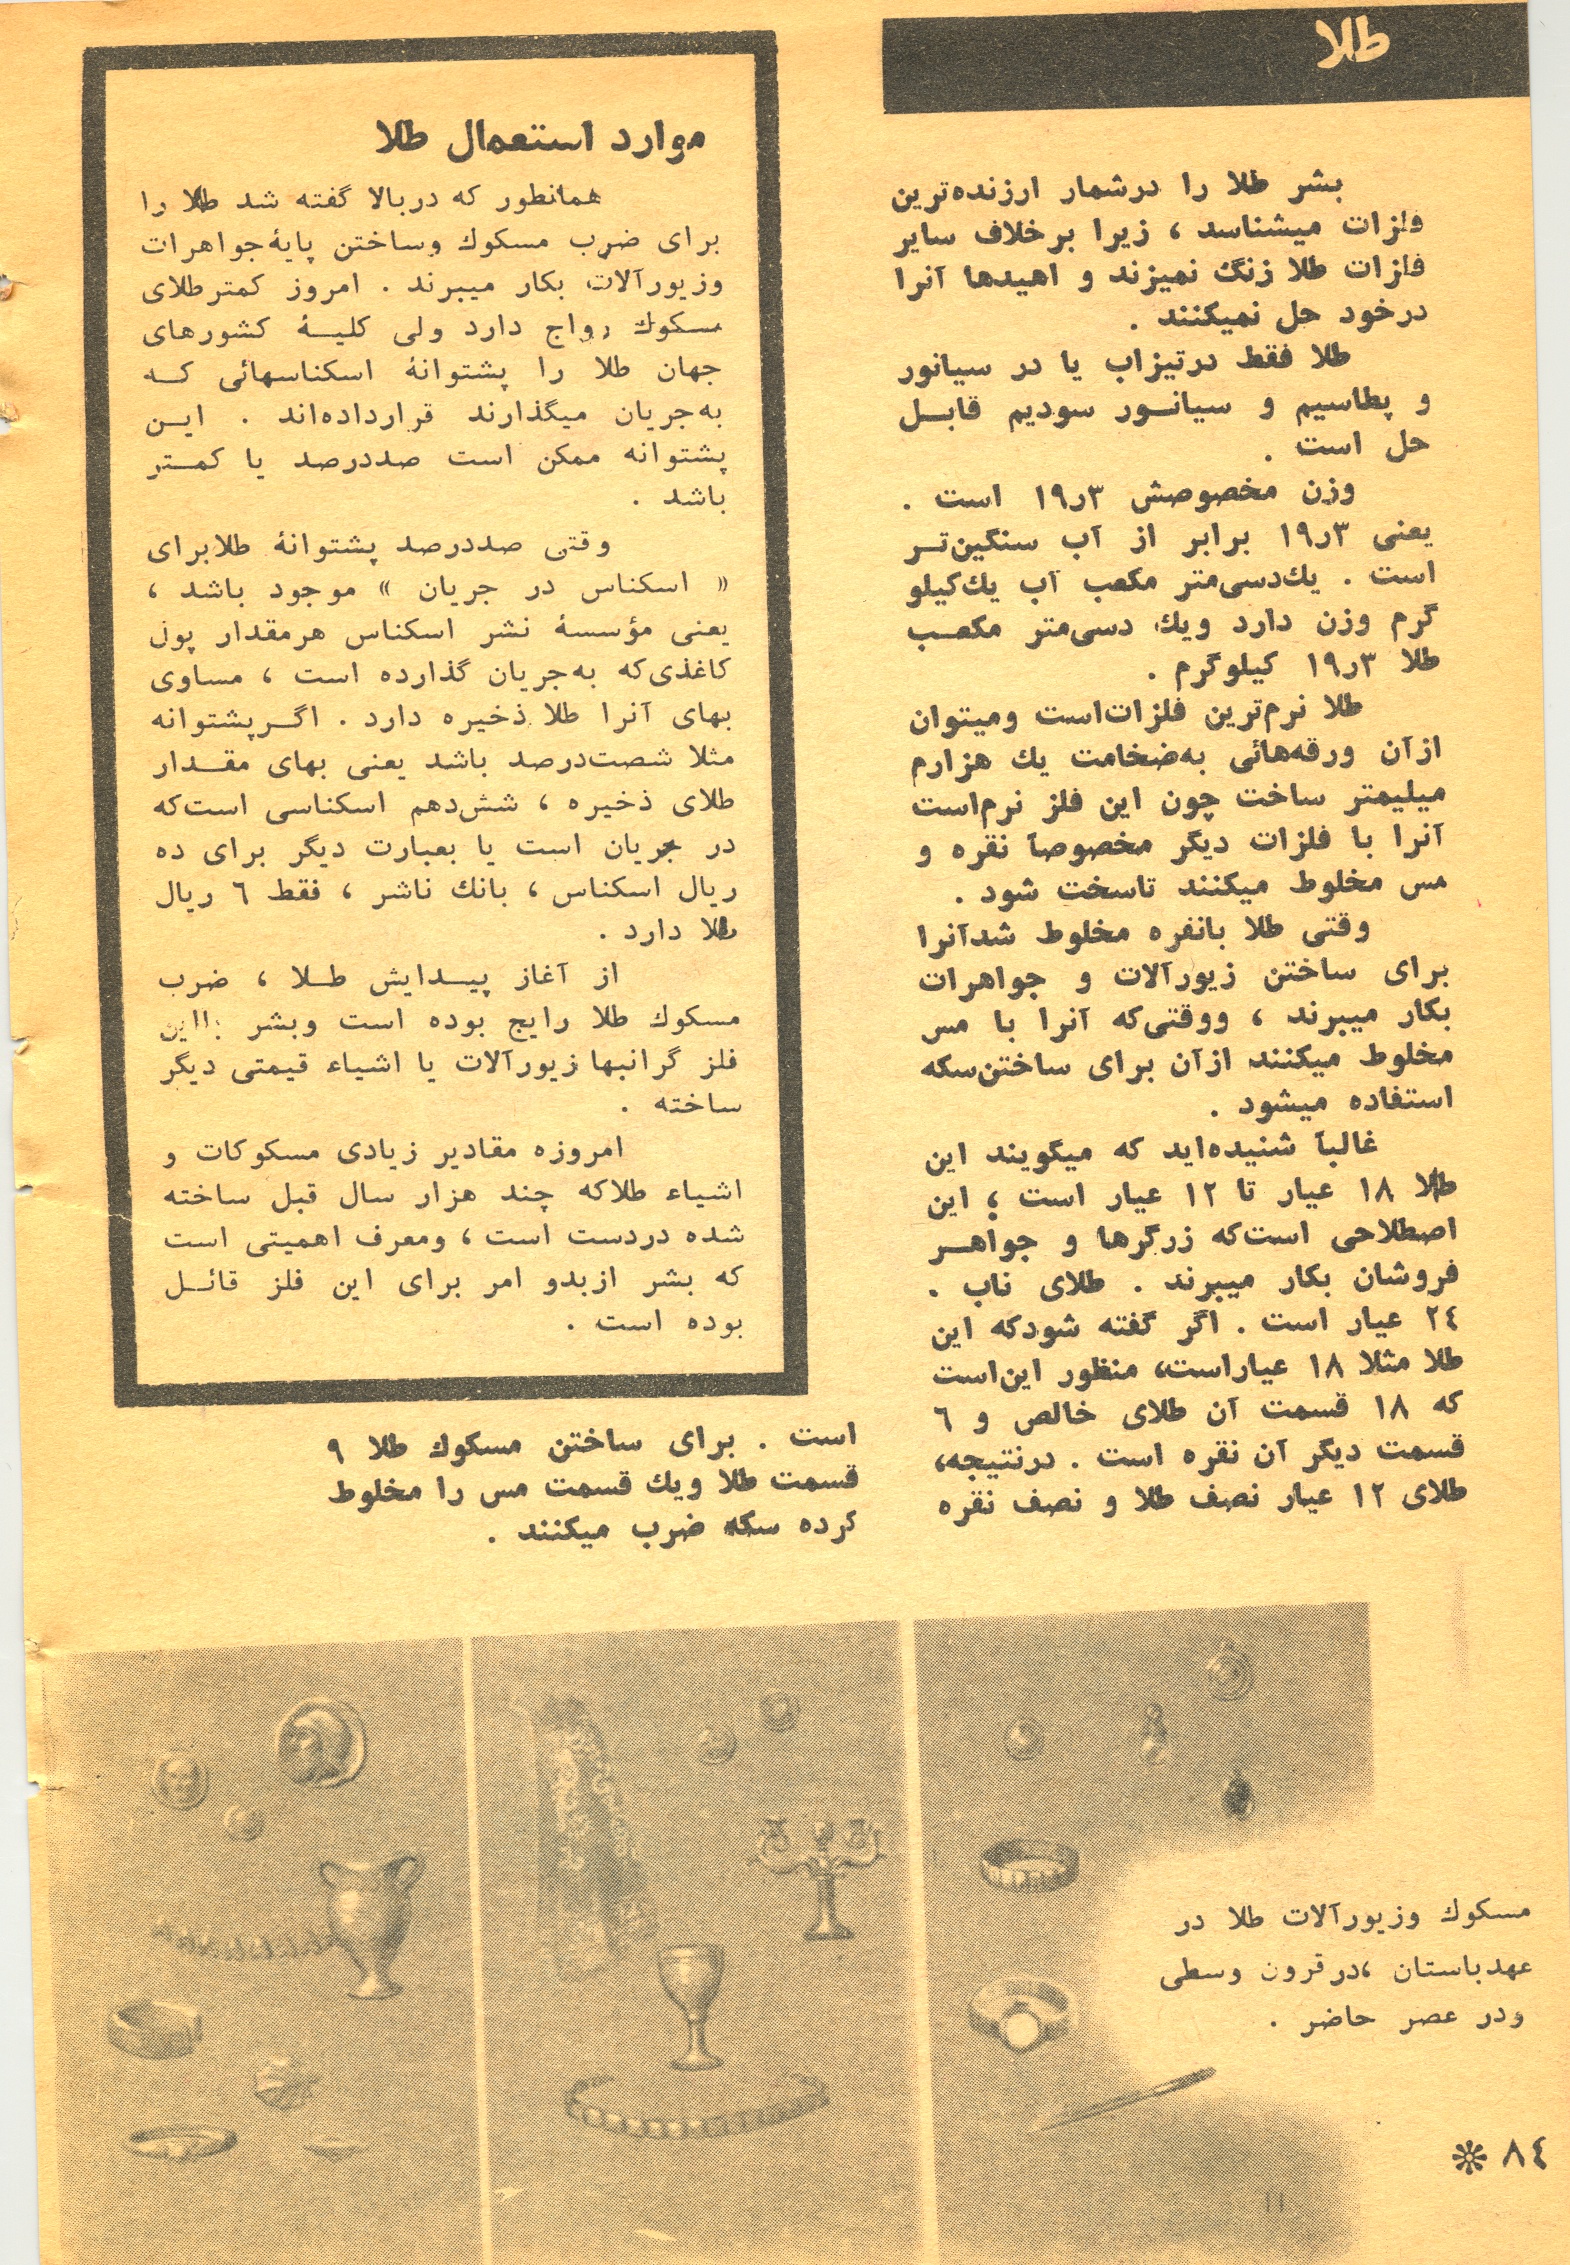 طلا
بشر طلا را درشمار ارزنده‌ترین
فلزات میشناسد ، زیرا برخلاف سایر
فلزات طلا زنگ نمیزند و اسیدها آنرا
درخود حل نمیکنند .
طلا فقط درتیزاب یا در سیانور
و پطاسیم و سیانور سودیم قابل
حل است .
وزن مخصوصش ۱۹٫۳ است .
یعنی ۱۹٫۳ برابر از آب سنگین‌تر
است . یك‌دسی‌متر مکعب آب یك‌کیلو
گرم وزن دارد ویك دسی‌متر مکعب
طلا ۱۹٫۳ کیلوگرم .
طلا نرم‌ترین فلزات‌است ومیتوان
ازآن ورقه‌هائی به‌ضخامت یك هزارم
میلیمتر ساخت چون این فلز نرم‌است
آنرا با فلزات دیگر مخصوصاً نقره و
مس مخلوط میکنند تاسخت شود .
وقتی طلا بانقره مخلوط شدآنرا
برای ساختن زیورآلات و جواهرات
بکار میبرند ، ووقتی‌که آنرا با مس
مخلوط میکنند ازآن برای ساختن‌سکه
استفاده میشود .
غالباً شنیده‌اید که میگویند این
طلا ۱۸ عیار تا ۱۲ عیار است ؛ این
اصطلاحی است‌که زرگرها و جواهر
فروشان بکار میبرند . طلای ناب .
۲٤ عیار است . اگر گفته شودکه این
طلا مثلا ۱۸ عیاراست، منظور این‌است
که ۱۸ قسمت آن طلای خالص و ٦
قسمت دیگر آن نقره است . درنتیجه،
طلای ۱۲ عیار نصف طلا و نصف نقره
است . برای ساختن مسکوك طلا ۹
قسمت طلا ویك قسمت مس را مخلوط
کرده سکه ضرب میکنند .
موارد استعمال طلا
همانطور که دربالا گفته شد طلا را
برای ضرب مسکوك وساختن پایهٔ جواهرات
وزیورآلات بکار میبرند . امروز کمترطلای
مسکوك رواج دارد ولی کلیهٔ کشورهای
جهان طلا را پشتوانهٔ اسکناسهائی که
به‌جریان میگذارند قرارداده‌اند . این
پشتوانه ممکن است صددرصد یا کمتر
باشد .
وقتی صددرصد پشتوانهٔ طلابرای
« اسکناس در جریان » موجود باشد ،
یعنی مؤسسهٔ نشر اسکناس هرمقدار پول
کاغذی‌که به‌جریان گذارده است ، مساوی
بهای آنرا طلا ذخیره دارد . اگرپشتوانه
مثلا شصت‌درصد باشد یعنی بهای مقدار
طلای ذخیره ، شش‌دهم اسکناسی است‌که
در جریان است یا بعبارت دیگر برای ده
ریال اسکناس ، بانك ناشر ، فقط ٦ ریال
طلا دارد .
از آغاز پیدایش طلا ، ضرب
مسکوك طلا رایج بوده است وبشر بااین
فلز گرانبها زیورآلات یا اشیاء قیمتی دیگر
ساخته .
امروزه مقادیر زیادی مسکوکات و
اشیاء طلاکه چند هزار سال قبل ساخته
شده دردست است ، ومعرف اهمیتی است
که بشر ازبدو امر برای این فلز قائل
بوده است .
مسکوك وزیورآلات طلا در
عهدباستان ،درقرون وسطی
ودر عصر حاضر .
۸٤